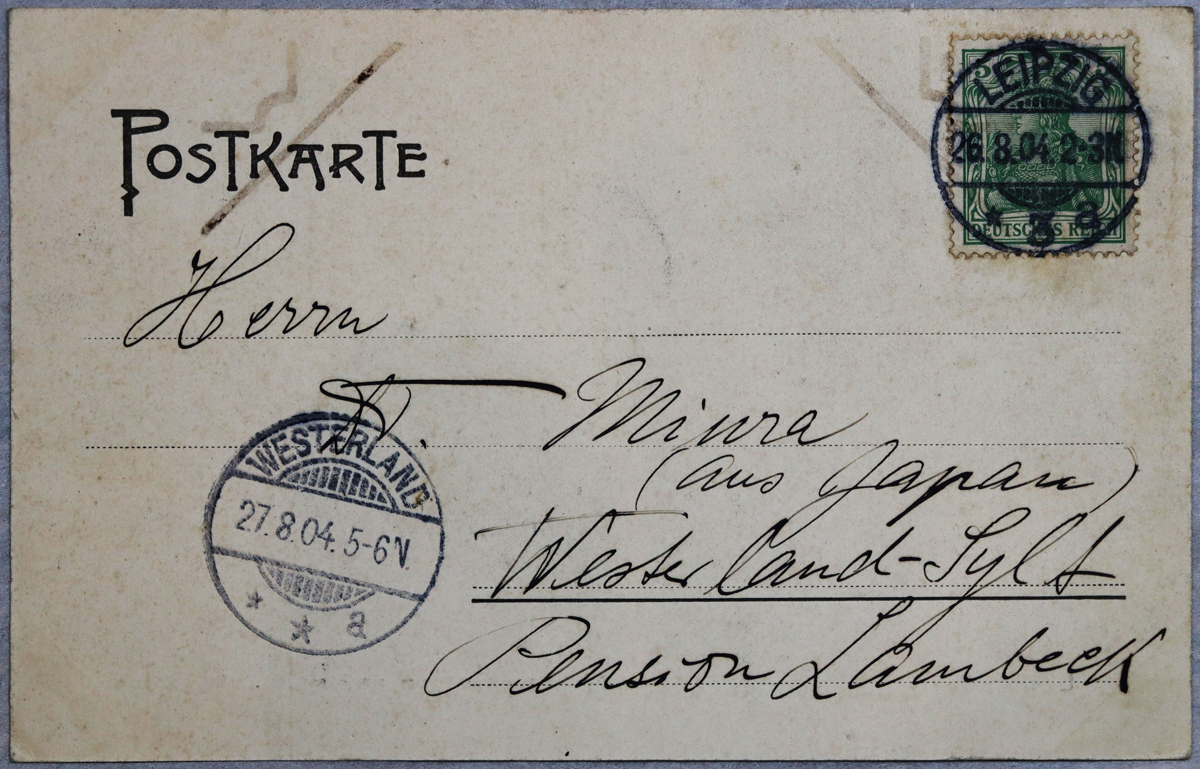 POSTKARTE
5
LEIPZIG
26.8.04.2-3N.
* 3 a
DEUTSCHES REICH
Herrn
Miura
(aus Japan)
Westerland-Sylt
Pension Lambeck
WESTERLAND
27.8.04.5-6V.
* * a